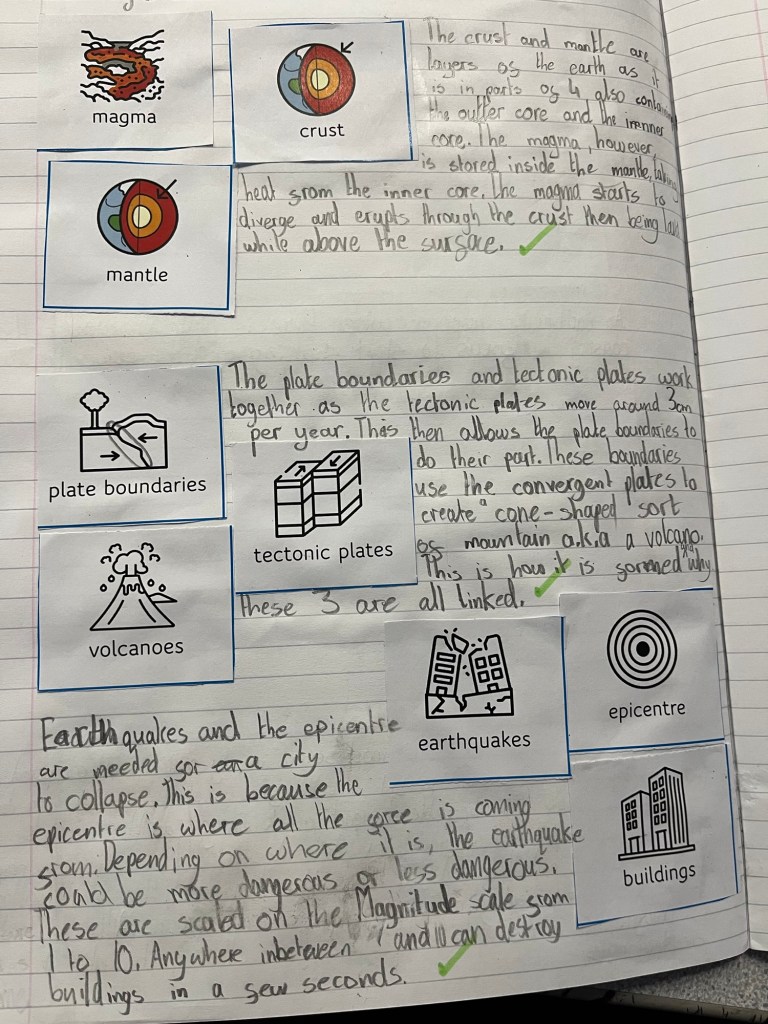 magma
crust
mantle
The crust and mantle are
layers of the earth as it
is in parts of 4 also
the outter core and the
core. The magma, however,
is stored inside the mantle,
heat from the inner core. The magma starts to
diverge and erupts through the crust then being
while above the surface.
plate boundaries
tectonic plates
volcanoes
The plate boundaries and tectonic plates work
together as the tectonic plates move around 3cm
per year. This then allows the plate boundaries to
do their part. These boundaries
use the convergent plates to
create a cone-shaped sort
of mountain a.k.a a volcano.
This is how it is formed and why
these 3 are all linked.
earthquakes
epicentre
buildings
Earthquakes and the epicentre
are needed for a city
to collapse. This is because the
epicentre is where all the force is coming
from. Depending on where it is, the earthquake
could be more dangerous or less dangerous.
These are scaled on the Magnitude scale from
1 to 10. Anywhere inbetween 7 and 10 can destroy
buildings in a few seconds.